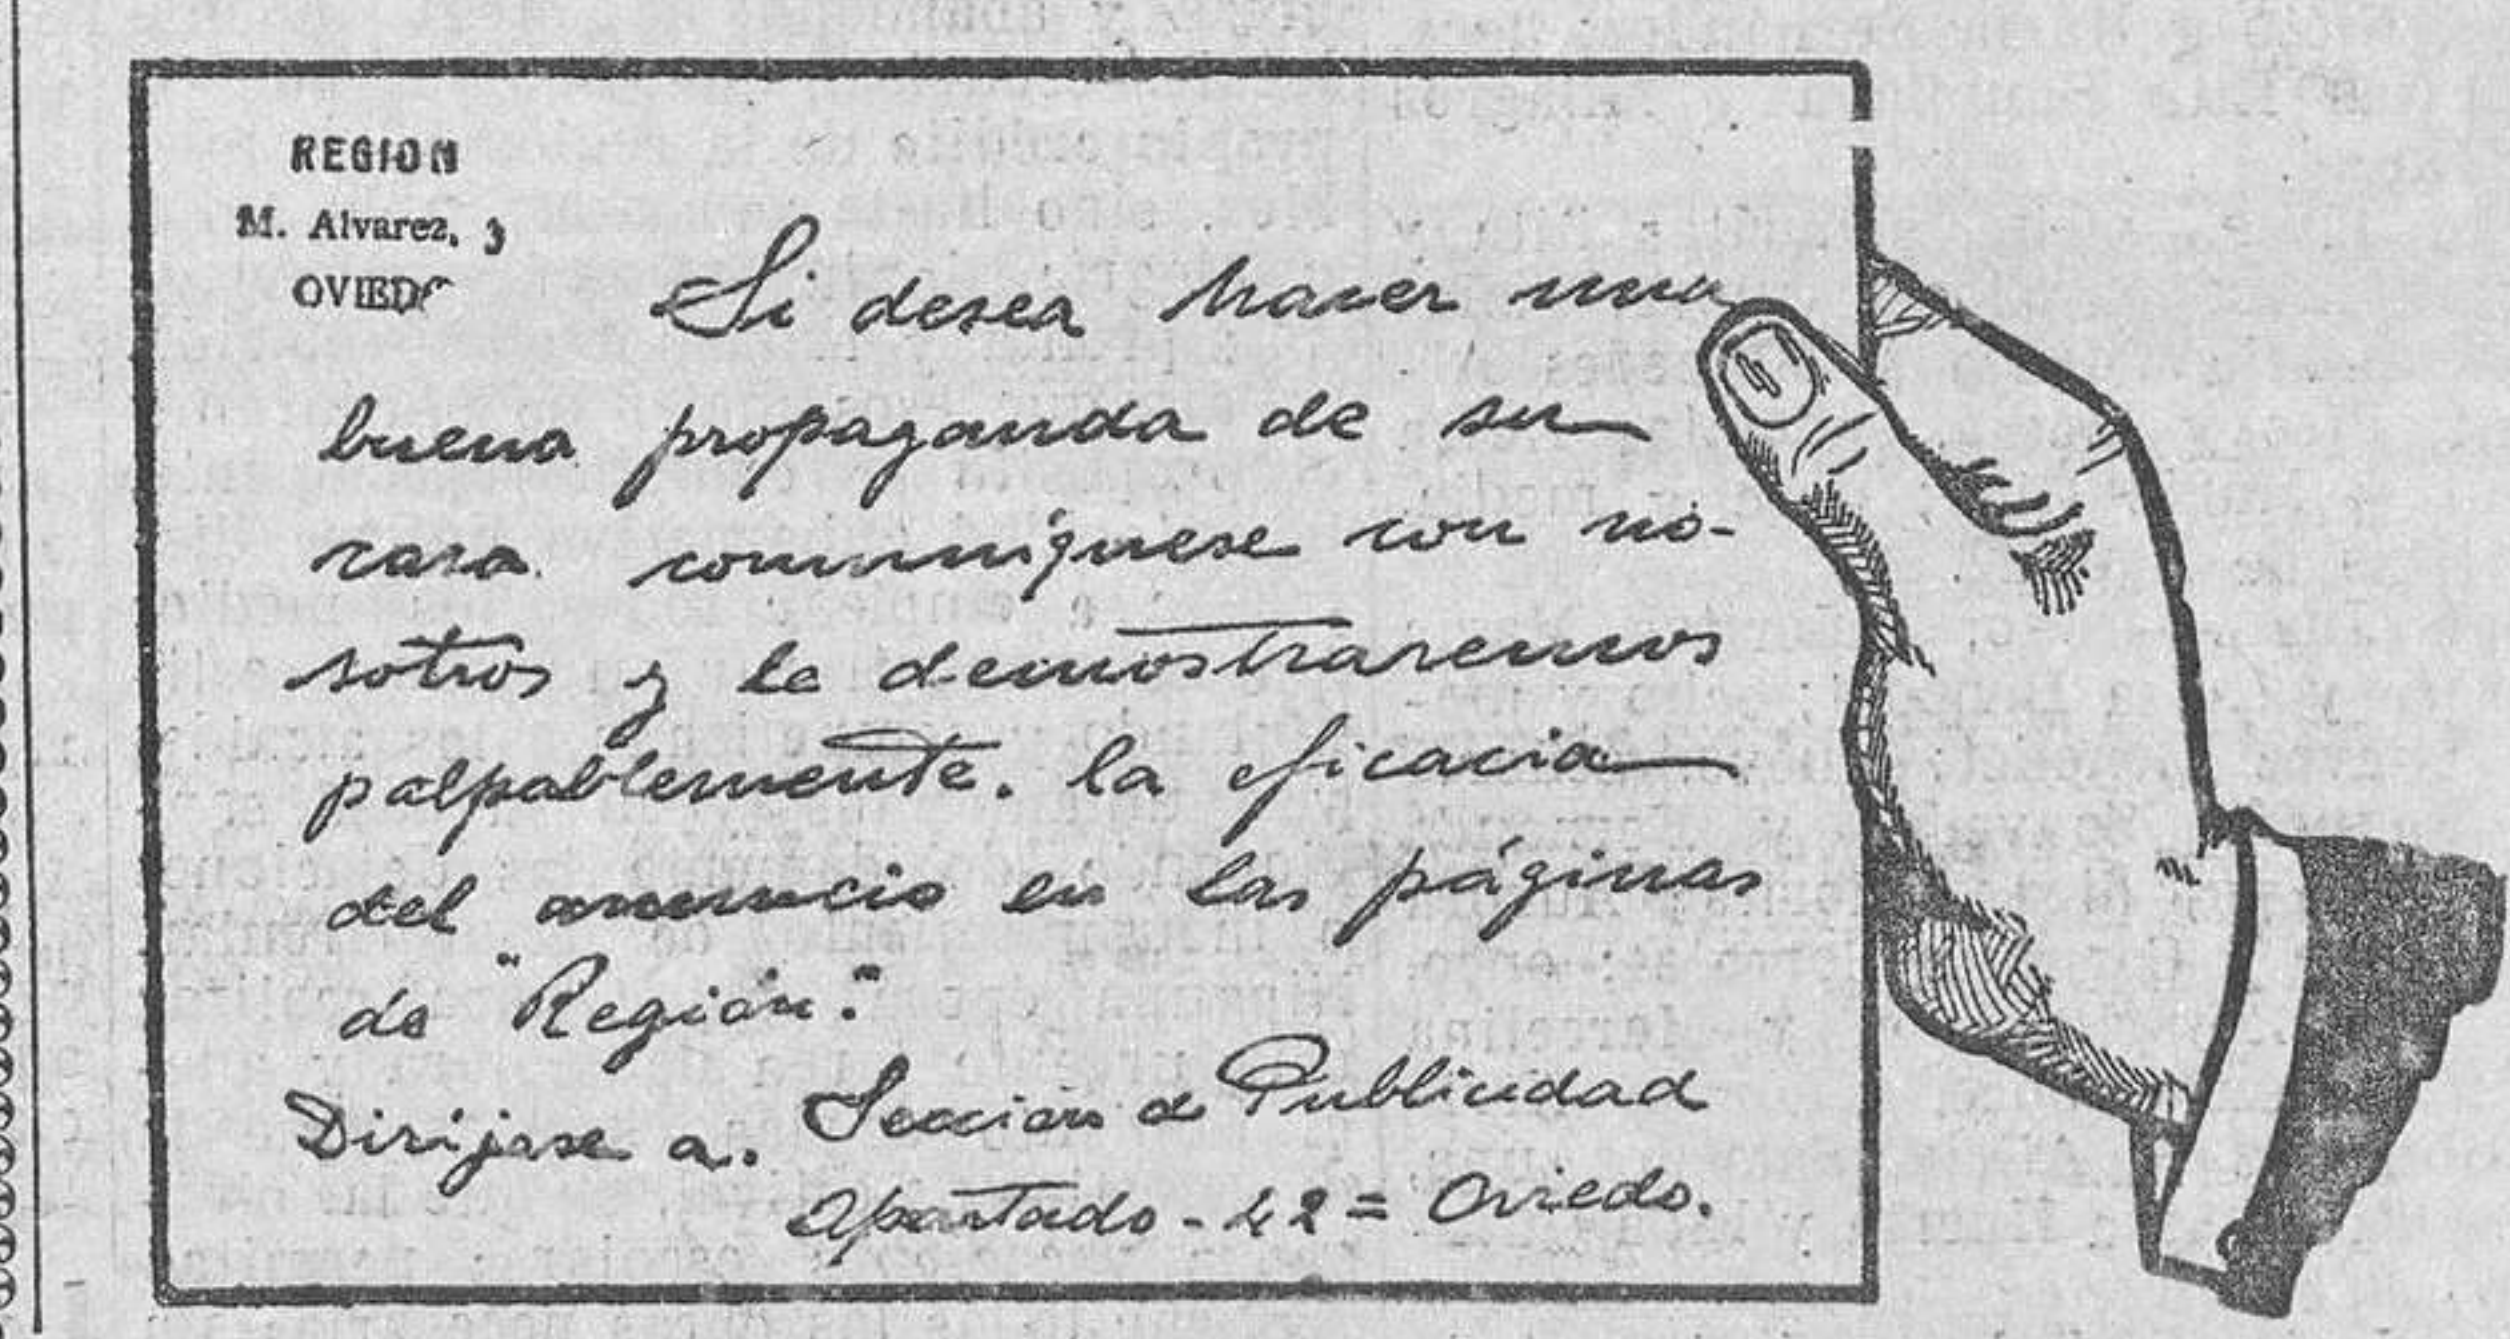 REGION
M. Alvarez, 3
OVIEDO
Si desea hacer una
buena propaganda de su
casa comuníquese con no-
sotros y le demostraremos
palpablemente. la eficacia
del anuncio en las páginas
de "Región."
Diríjase a. Sección de Publicidad
Apartado - 42 = Oviedo.